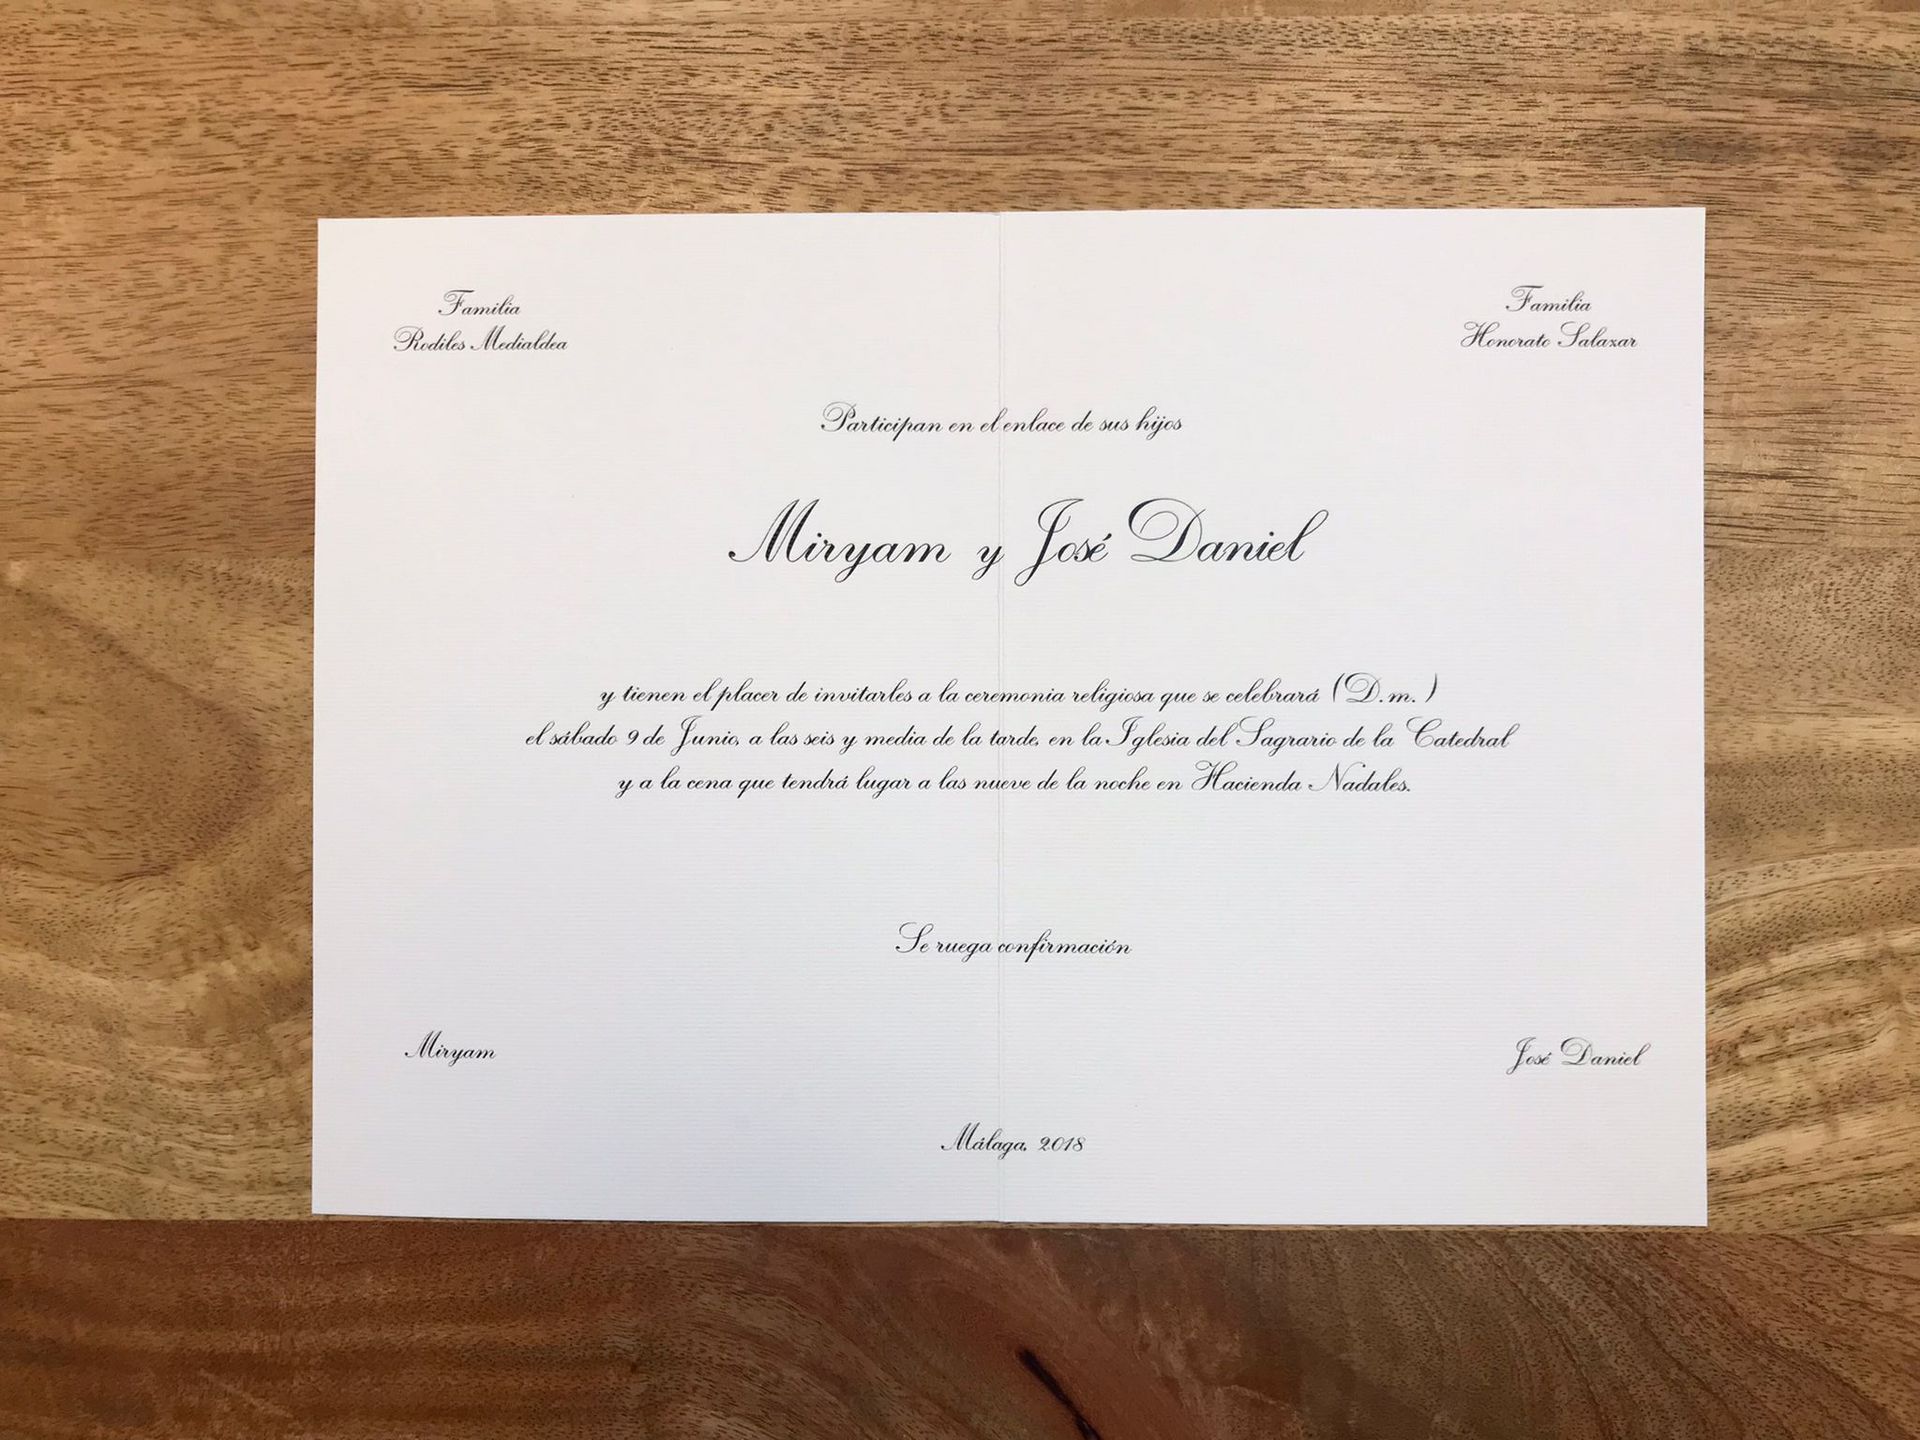 Familia
Rodiles Medialdea
Familia
Honorato Salazar
Participan en el enlace de sus hijos
Miryam y José Daniel
y tienen el placer de invitarles a la ceremonia religiosa que se celebrará (D.m. )
el sábado 9 de Junio, a las seis y media de la tarde, en la Iglesia del Sagrario de la Catedral
y a la cena que tendrá lugar a las nueve de la noche en Hacienda Nadales.
Se ruega confirmación
Miryam
José Daniel
Málaga, 2018